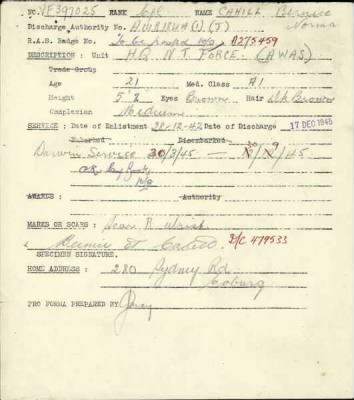 NO. VF397025 RANK Cpl NAME CAHILL Bernice Norma
Discharge Authority No. (1) (J)
R.A.S. Badge No. To be posted A275459
DESCRIPTION : Unit H.Q. N.T. FORCE. (AWAS)
Trade Group
Age 21 Med. Class A1
Height 5' 8 Eyes Brown Hair Dk Brown
Complexion Medium
SERVICE : Date of Enlistment 28-12-42 Date of Discharge 17 DEC 1945
Embarked Disembarked
Darwin Service 30/3/45 — /9/45
AWARDS : Authority
MARKS OR SCARS : Scar R Wrist
S/C 479533
SPECIMEN SIGNATURE.
HOME ADDRESS : 280 Sydney Rd
Coburg
PRO FORMA PREPARED BY